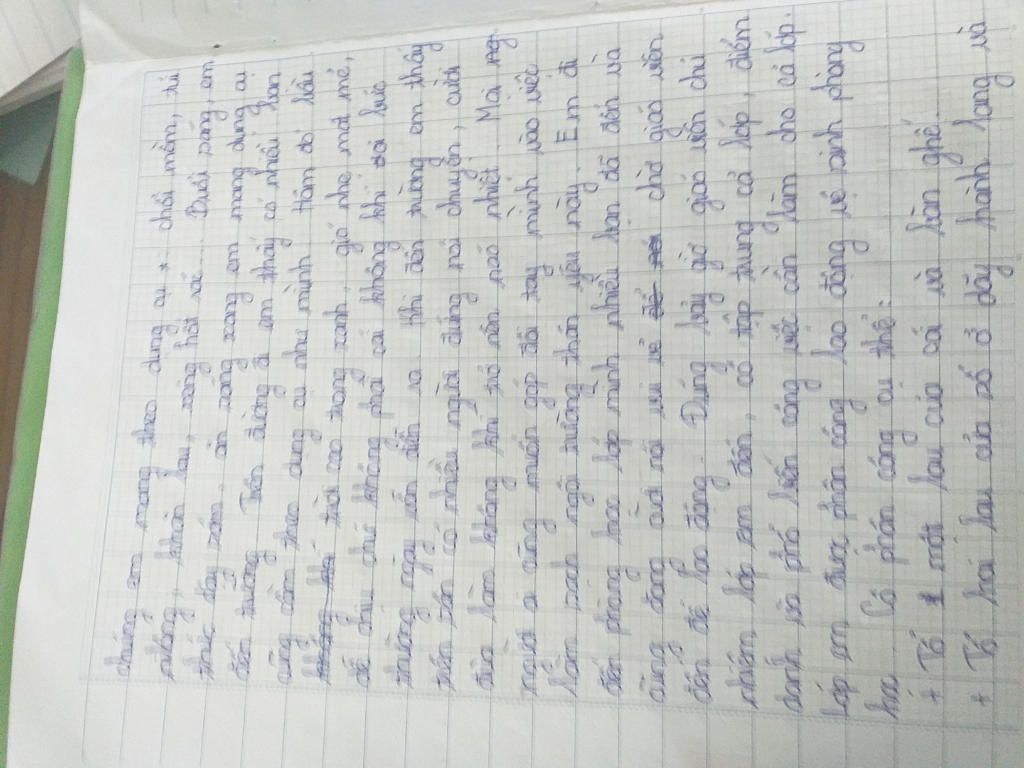 chúng em mang theo dụng cụ chổi mềm, túi
nhông, khăn lau, xẻng hốt rác. Buổi sáng, em
thức dậy sớm, ăn sáng xong em mang dụng cụ
đến trường. Trên đường đi em thấy có nhiều bạn
cũng cầm theo dụng cụ như mình. Hôm đó bầu
trời cao trong xanh, gió nhẹ mát mẻ,
dễ chịu chứ không phải cái không khí oi bức
thường ngày vốn diễn ra. Khi đến trường em thấy
trên sân có nhiều người đứng nói chuyện, cười
đùa làm không khí trở nên náo nhiệt. Mọi
người ai cũng muốn góp đôi tay mình vào việc
làm sạch ngôi trường thân yêu này. Em đi
đến phòng học lớp mình nhiều bạn đã đến và
cũng đang cười nói vui vẻ chờ giáo viên
đến để lao động. Đúng bảy giờ giáo viên chủ
nhiệm lớp em đến, cô tập trung cả lớp, điểm
danh và phổ biến công việc cần làm cho cả lớp.
Lớp em được phân công lao động vệ sinh phòng
học. Cô phân công cụ thể:
+ Tổ một lau cửa cái và bàn ghế.
+ Tổ hai lau cửa sổ ở dãy hành lang và